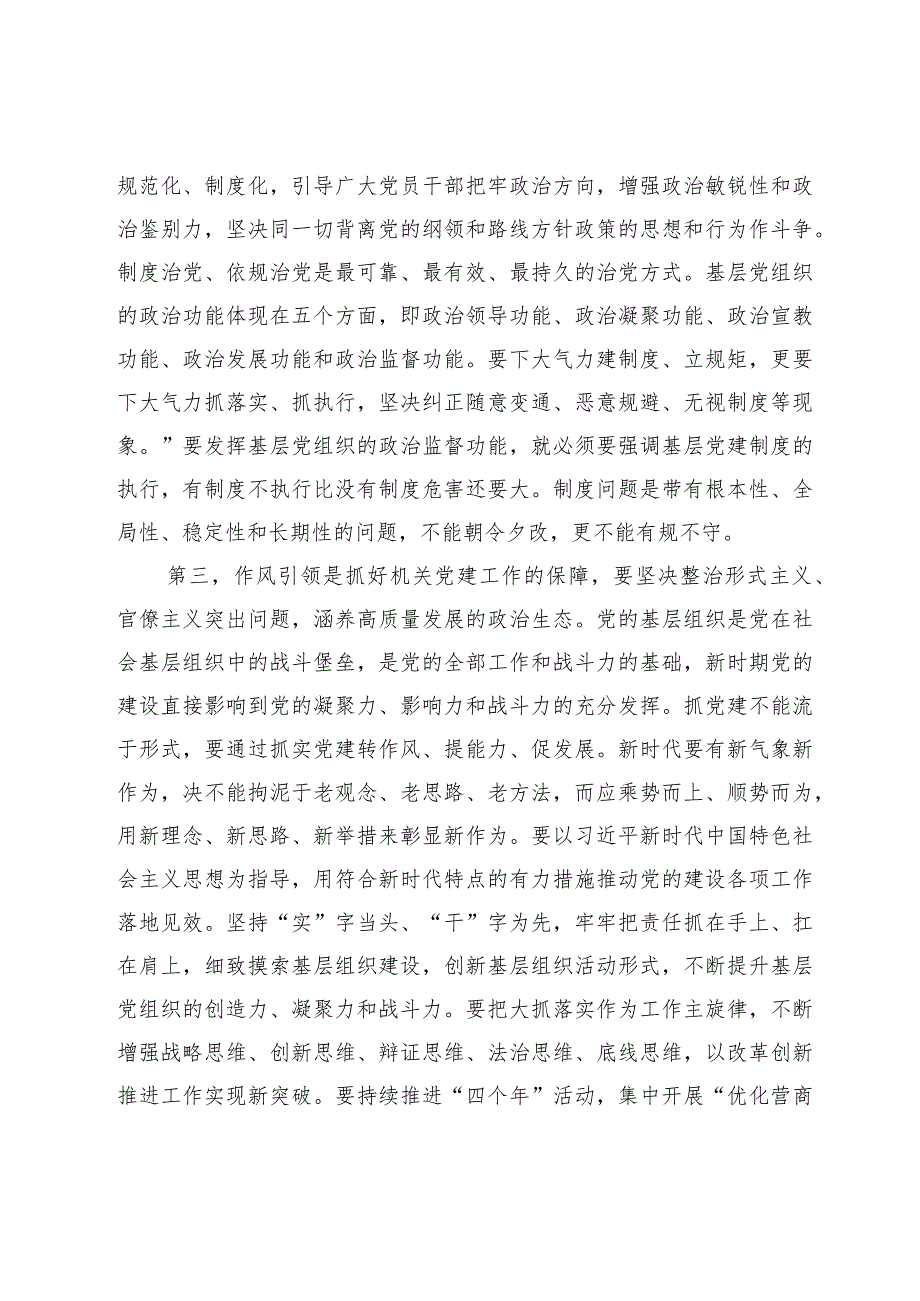 规范化、制度化，引导广大党员干部把牢政治方向，增强政治敏锐性和政
治鉴别力，坚决同一切背离党的纲领和路线方针政策的思想和行为作斗争。
制度治党、依规治党是最可靠、最有效、最持久的治党方式。基层党组织
的政治功能体现在五个方面，即政治领导功能、政治凝聚功能、政治宣教
功能、政治发展功能和政治监督功能。要下大气力建制度、立规矩，更要
下大气力抓落实、抓执行，坚决纠正随意变通、恶意规避、无视制度等现
象。”要发挥基层党组织的政治监督功能，就必须要强调基层党建制度的
执行，有制度不执行比没有制度危害还要大。制度问题是带有根本性、全
局性、稳定性和长期性的问题，不能朝令夕改，更不能有规不守。
第三，作风引领是抓好机关党建工作的保障，要坚决整治形式主义、
官僚主义突出问题，涵养高质量发展的政治生态。党的基层组织是党在社
会基层组织中的战斗堡垒，是党的全部工作和战斗力的基础，新时期党的
建设直接影响到党的凝聚力、影响力和战斗力的充分发挥。抓党建不能流
于形式，要通过抓实党建转作风、提能力、促发展。新时代要有新气象新
作为，决不能拘泥于老观念、老思路、老方法，而应乘势而上、顺势而为，
用新理念、新思路、新举措来彰显新作为。要以习近平新时代中国特色社
会主义思想为指导，用符合新时代特点的有力措施推动党的建设各项工作
落地见效。坚持“实”字当头、“干”字为先，牢牢把责任抓在手上、扛
在肩上，细致摸索基层组织建设，创新基层组织活动形式，不断提升基层
党组织的创造力、凝聚力和战斗力。要把大抓落实作为工作主旋律，不断
增强战略思维、创新思维、辩证思维、法治思维、底线思维，以改革创新
推进工作实现新突破。要持续推进“四个年”活动，集中开展“优化营商